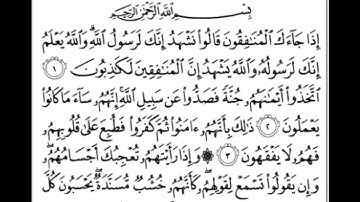 بِسْمِ اللَّهِ الرَّحْمَٰنِ الرَّحِيمِ
إِذَا جَاءَكَ الْمُنَافِقُونَ قَالُوا نَشْهَدُ إِنَّكَ لَرَسُولُ اللَّهِ ۗ وَاللَّهُ يَعْلَمُ
إِنَّكَ لَرَسُولُهُ وَاللَّهُ يَشْهَدُ إِنَّ الْمُنَافِقِينَ لَكَاذِبُونَ ١
اتَّخَذُوا أَيْمَانَهُمْ جُنَّةً فَصَدُّوا عَن سَبِيلِ اللَّهِ ۚ إِنَّهُمْ سَاءَ مَا كَانُوا
يَعْمَلُونَ ٢ ذَٰلِكَ بِأَنَّهُمْ آمَنُوا ثُمَّ كَفَرُوا فَطُبِعَ عَلَىٰ قُلُوبِهِمْ
فَهُمْ لَا يَفْقَهُونَ ٣ ۞ وَإِذَا رَأَيْتَهُمْ تُعْجِبُكَ أَجْسَامُهُمْ ۖ
وَإِن يَقُولُوا تَسْمَعْ لِقَوْلِهِمْ ۖ كَأَنَّهُمْ خُشُبٌ مُّسَنَّدَةٌ ۖ يَحْسَبُونَ كُلَّ